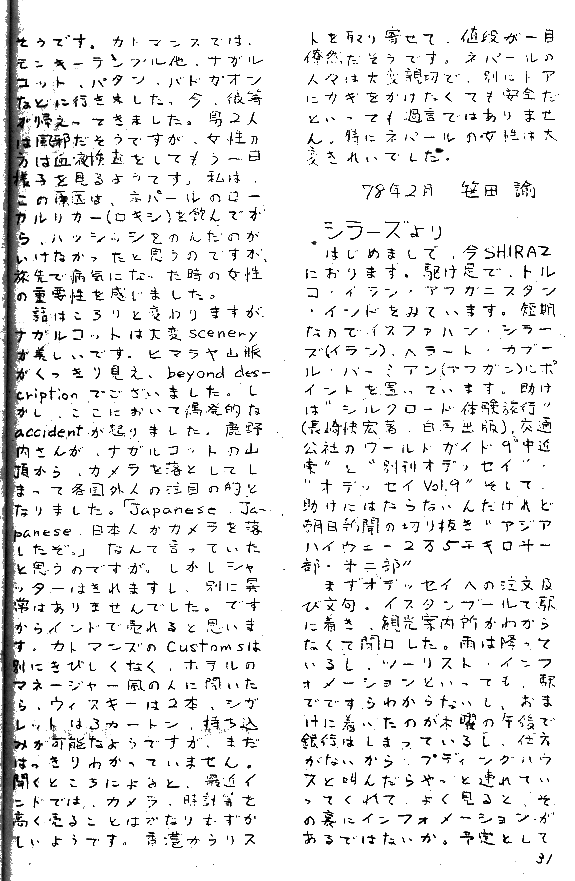 そうです。カトマンズでは、
モンキーテンプル他、ナガル
コット、パタン、バドガオン
などに行きました。今、彼等
が帰ってきました。男2人
は風邪だそうですが、女性の
方は血液検査をしてもう一日
様子を見るようです。私は、
この原因は、ネパールのロー
カルリカー(ロキシ)を飲んでか
ら、ハッシッシをのんだのが
いけなかったと思うのですが、
旅先で病気になった時の女性
の重要性を感じました。
話はころりと変わりますが、
ナガルコットは大変scenery
が美しいです。ヒマラヤ山脈
がくっきり見え、beyond des-
criptionでございました。し
かし、ここにおいて偶発的な
accidentが起りました。鹿野
内さんが、ナガルコットの山
頂から、カメラを落としてし
まって各国外人の注目の的と
なりました。「Japanese、Ja-
panese、日本人がカメラを落
したぞ。」なんて言っていた
と思うのですが。しかしシャ
ッターはきれますし、別に異
常はありませんでした。です
からインドで売れると思いま
す。カトマンズのCustomsは
別にきびしくなく、ホテルの
マネージャー風の人に聞いた
ら、ウィスキーは2本、シガ
レットは3カートン、持ち込
みが可能なようですが、まだ
はっきりわかっていません。
聞くところによると、最近イ
ンドでは、カメラ、時計等を
高く売ることはかなりむずか
しいようです。香港からリス
トを取り寄せて、値段が一目
瞭然だそうです。ネパールの
人々は大変親切で、別にドア
にカギをかけなくても安全だ
といっても過言ではありませ
ん。特にネパールの女性は大
変きれいでした。
78年2月 笹田 諭
シラーズより
はじめまして、今SHIRAZ
におります。駆け足で、トル
コ・イラン・アフガニスタン
・インドをみています。短期
なのでイスファハン・シラー
ズ(イラン)、ヘラート・カブー
ル・バーミアン(アフガン)にポ
イントを置いています。助け
は"シルクロード体験旅行"
(長崎快宏著、白馬出版)、交通
公社のワールドガイド9"中近
東"と"別刊オデッセイ"・
"オデッセイVol.9"そして、
助けにはならないんだけれど
朝日新聞の切り抜き"アジア
ハイウェー2万5千キロサー
部・オニ部"
まずオデッセイへの注文及
び文句。イスタンブールで駅
に着き、観光案内所がわから
なくて閉口した。雨は降って
いるし、ツーリスト・インフ
ォメーションといっても、駅
でですらわからないし、おま
けに着いたのが木曜の午後で
銀行はしまっているし、仕方
がないから、プディングハウ
スと叫んだらやっと連れてい
ってくれて、よく見ると、そ
の裏にインフォメーションが
あるではないか。予定として
31